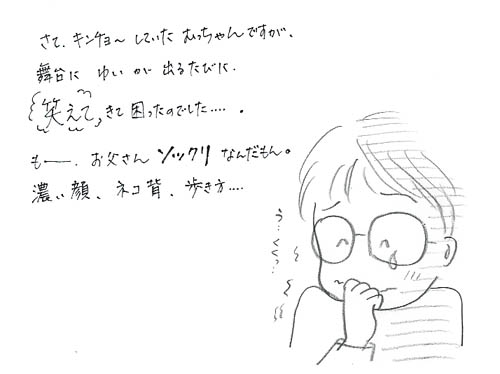 さて、キンチョーしていたむっちゃんですが、
舞台に ゆいが 出るたびに、
笑えてきて困ったのでした‥‥。
もー、お父さん ソックリ なんだもん。
濃い顔、ネコ背、歩き方‥‥
う‥くくっ‥